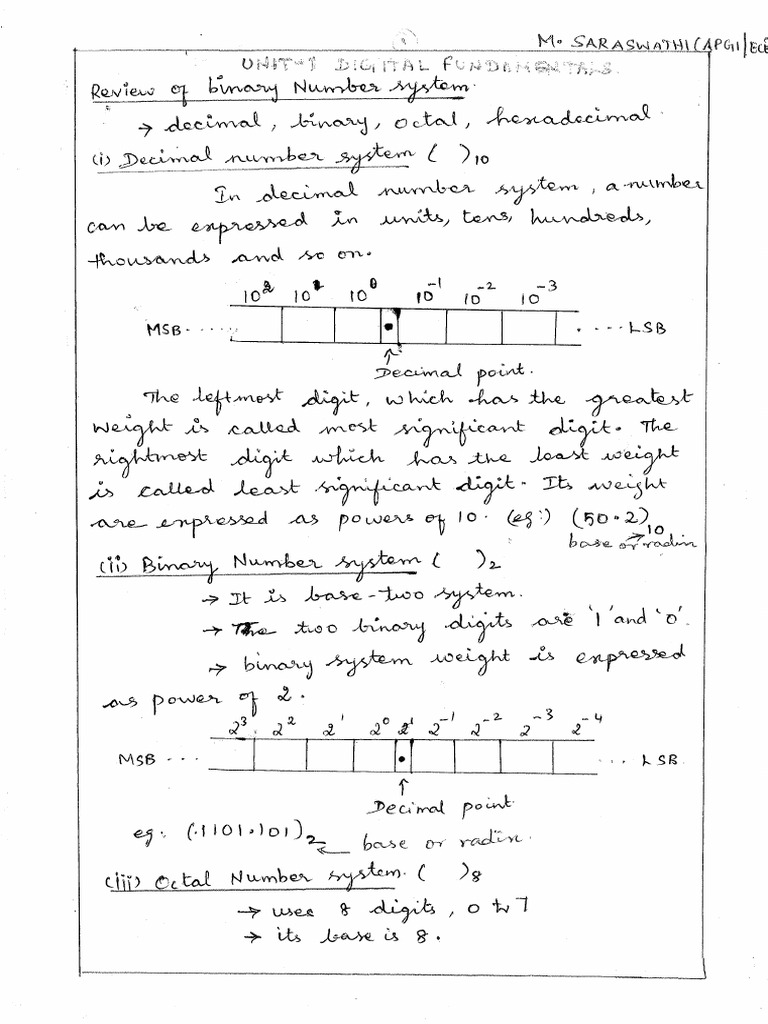 M. SARASWATHI (AP(G1/ECE
UNIT-1 DIGITAL FUNDAMENTALS.
Review of binary Number system.
→ decimal, binary, octal, hexadecimal
(i) Decimal number system ( )10
In decimal number system, a number
can be expressed in units, tens, hundreds,
thousands and so on.
10² 10¹ 10⁰ 10⁻¹ 10⁻² 10⁻³
MSB ..... • .... LSB
↑
Decimal point.
The leftmost digit, which has the greatest
weight is called most significant digit. The
rightmost digit which has the least weight
is called least significant digit. Its weight
are expressed as powers of 10. (eg:) (50.2)10
base or radix
(ii) Binary Number system ( )2
→ It is base-two system.
→ The two binary digits are '1' and '0'.
→ binary system weight is expressed
as power of 2.
2³ 2² 2¹ 2⁰ 2⁻¹ 2⁻² 2⁻³ 2⁻⁴
MSB ... • ... LSB
↑
Decimal point
eg: (.1101.101)2 ← base or radix.
(iii) Octal Number system. ( )8
→ uses 8 digits, 0 to 7
→ its base is 8.